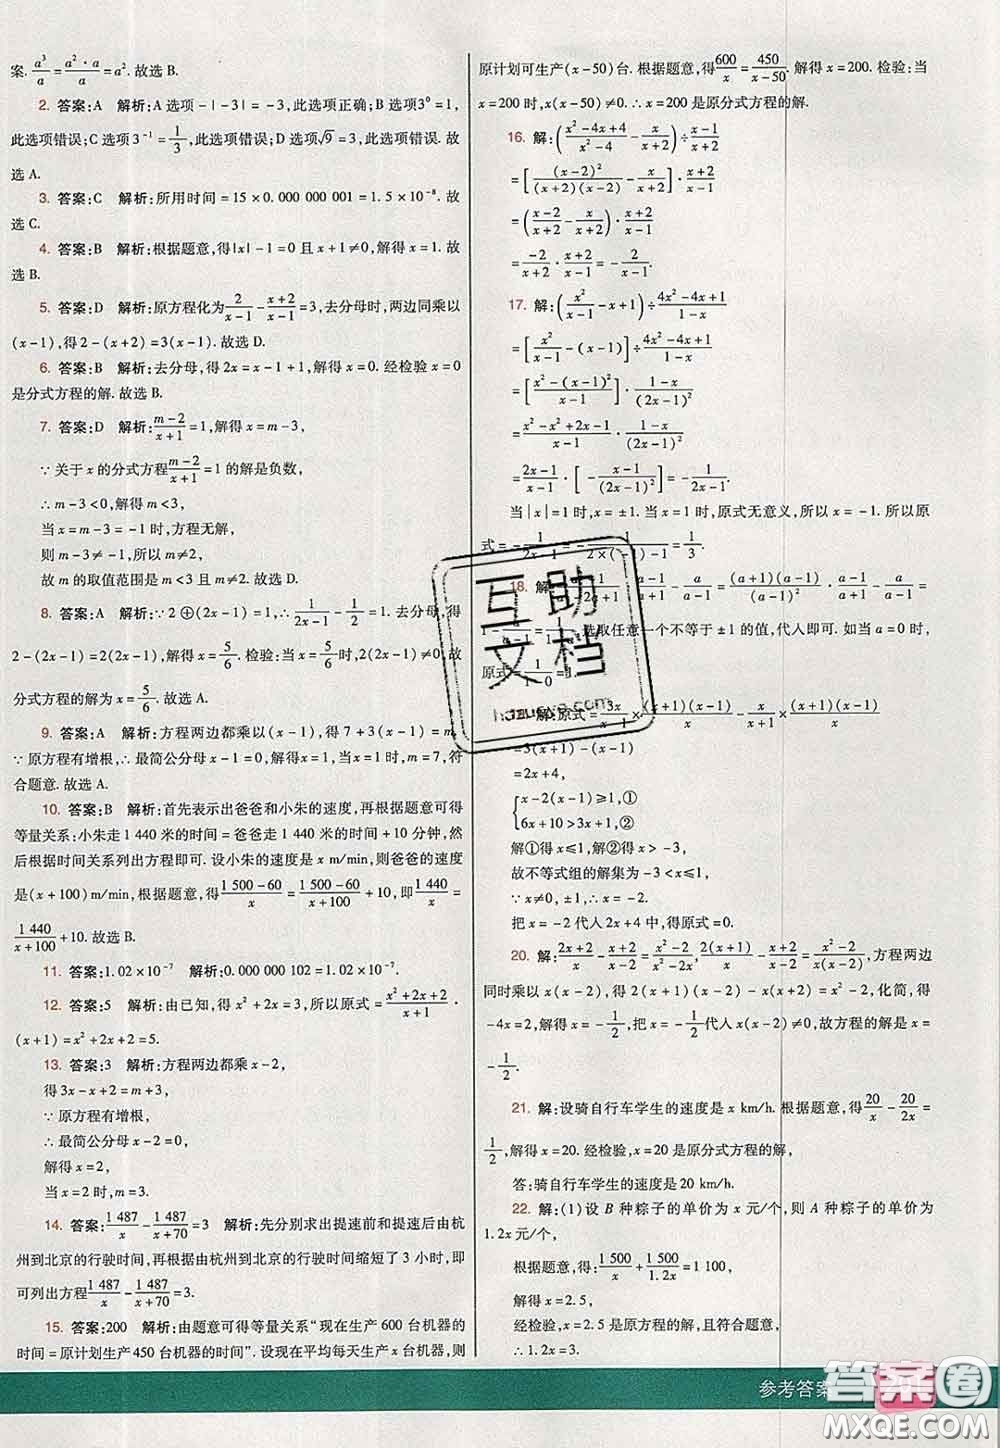 案. a³/a = a²·a/a = a². 故选 B.
2. 答案:A　解析:A 选项 -|-3| = -3, 此选项正确; B 选项 3⁰ = 1,
此选项错误; C 选项 3⁻¹ = 1/3, 此选项错误; D 选项√9 = 3, 此选项错误. 故
选 A.
3. 答案:C　解析:所用时间 = 15 × 0. 000 000 001 = 1. 5 × 10⁻⁸. 故
选 C.
4. 答案:B　解析:根据题意, 得|x| - 1 = 0 且 x + 1 ≠ 0, 解得 x = 1. 故
选 B.
5. 答案:D　解析:原方程化为 2/(x-1) - (x+2)/(x-1) = 3, 去分母时, 两边同乘以
(x-1), 得 2-(x+2) = 3(x-1). 故选 D.
6. 答案:B　解析:去分母, 得 2x = x-1+1, 解得 x = 0. 经检验 x = 0
是分式方程的解. 故选 B.
7. 答案:D　解析: (m-2)/(x+1) = 1, 解得 x = m-3,
∵ 关于 x 的分式方程 (m-2)/(x+1) = 1 的解是负数,
∴ m-3<0, 解得 m<3,
当 x = m-3 = -1 时, 方程无解,
则 m-3≠-1, 所以 m≠2,
故 m 的取值范围是 m<3 且 m≠2. 故选 D.
8. 答案:A　解析:∵ 2⊕(2x-1) = 1, ∴ 1/(2x-1) - 1/2 = 1. 去分母, 得
2-(2x-1) = 2(2x-1), 解得 x = 5/6. 检验:当 x = 5/6 时, 2(2x-1)≠0. 故
分式方程的解为 x = 5/6. 故选 A.
9. 答案:A　解析:方程两边都乘以(x-1), 得 7+3(x-1) = m,
∵ 原方程有增根, ∴ 最简公分母 x-1 = 0, 解得 x = 1, 当 x = 1, m = 7, 符
合题意. 故选 A.
10. 答案:B　解析:首先表示出爸爸和小朱的速度, 再根据题意可得
等量关系:小朱走 1 440 米的时间 = 爸爸走 1 440 米的时间 + 10 分钟, 然
后根据时间关系列出方程即可. 设小朱的速度是 x m/min, 则爸爸的速度
是(x+100) m/min, 根据题意, 得 (1 500-60)/x = (1 500-60)/(x+100) + 10, 即 1 440/x =
1 440/(x+100) + 10. 故选 B.
11. 答案:1. 02 × 10⁻⁷　解析:0. 000 000 102 = 1. 02 × 10⁻⁷.
12. 答案:5　解析:由已知, 得 x²+2x = 3, 所以原式 = (x²+2x+2)/(x+1) ·
(x+1) = x²+2x+2 = 5.
13. 答案:3　解析:方程两边都乘 x-2,
得 3x-x+2 = m,
∵ 原方程有增根,
∴ 最简公分母 x-2 = 0,
解得 x = 2,
当 x = 2 时, m = 3.
14. 答案: 1 487/x - 1 487/(x+70) = 3　解析:先分别求出提速前和提速后由杭
州到北京的行驶时间, 再根据由杭州到北京的行驶时间缩短了 3 小时, 即
可列出方程 1 487/x - 1 487/(x+70) = 3.
15. 答案:200　解析:由题意可得等量关系“现在生产 600 台机器的
时间 = 原计划生产 450 台机器的时间”. 设现在平均每天生产 x 台机器, 则
原计划可生产(x-50)台. 根据题意, 得 600/x = 450/(x-50). 解得 x = 200. 检验:当
x = 200 时, x(x-50)≠0. ∴ x = 200 是原分式方程的解.
16. 解: ((x²-4x+4)/(x²-4) - x/(x+2)) ÷ (x-1)/(x+2)
= [(x-2)²/((x+2)(x-2)) - x/(x+2)] · (x+2)/(x-1)
= ((x-2)/(x+2) - x/(x+2)) · (x+2)/(x-1)
= -2/(x+2) · (x+2)/(x-1) = -2/(x-1).
17. 解: (x²/(x-1) - x + 1) ÷ (4x²-4x+1)/(1-x)
= [x²/(x-1) - (x-1)] ÷ (4x²-4x+1)/(1-x)
= [(x²-(x-1)²)/(x-1)] · (1-x)/(2x-1)²
= (x²-x²+2x-1)/(x-1) · (1-x)/(2x-1)²
= (2x-1)/(x-1) · [-(x-1)/(2x-1)²] = -1/(2x-1).
当|x| = 1 时, x = ±1. 当 x = 1 时, 原式无意义, 所以 x = -1. 所以原
式 = -1/(2x-1) = -1/(2×(-1)-1) = 1/3.
18. 解: · (a-1)/(a-1) - a/(a-1) = (a+1)(a-1)/(a-1)² · a/(a+1) - a/(a-1) =
选取任意一个不等于 ±1 的值, 代入即可. 如当 a = 0 时,
原式 = 1/(1-0) = 1
解:原式 = 3x/(x-1) × (x+1)(x-1)/x - x/(x+1) × (x+1)(x-1)/x
=3(x+1)-(x-1)
=2x+4,
x-2(x-1)≥1,①
6x+10>3x+1,②
解①得 x≤1, 解②得 x>-3,
故不等式组的解集为 -3<x≤1.
∵ x≠0, ±1, ∴ x = -2.
把 x = -2 代入 2x+4 中, 得原式 = 0.
20. 解: (2x+2)/x - (x+2)/(x-2) = (x²-2)/(x²-2x), 2(x+1)/x - (x+2)/(x-2) = (x²-2)/(x(x-2)), 方程两边
同时乘以 x(x-2), 得 2(x+1)(x-2)-x(x+2) = x²-2, 化简, 得
-4x = 2, 解得 x = -1/2, 把 x = -1/2 代入 x(x-2)≠0, 故方程的解是 x =
-1/2.
21. 解:设骑自行车学生的速度是 x km/h. 根据题意, 得 20/x - 20/2x =
1/2, 解得 x = 20. 经检验, x = 20 是原分式方程的解.
答:骑自行车学生的速度是 20 km/h.
22. 解:(1)设 B 种粽子的单价为 x 元/个, 则 A 种粽子的单价为
1. 2x 元/个,
根据题意, 得: 1 500/x + 1 500/1. 2x = 1 100,
解得 x = 2. 5,
经检验, x = 2. 5 是原方程的解, 且符合题意,
∴ 1. 2x = 3.
互助
文档
参考答案
答案圈
MXQE.COM